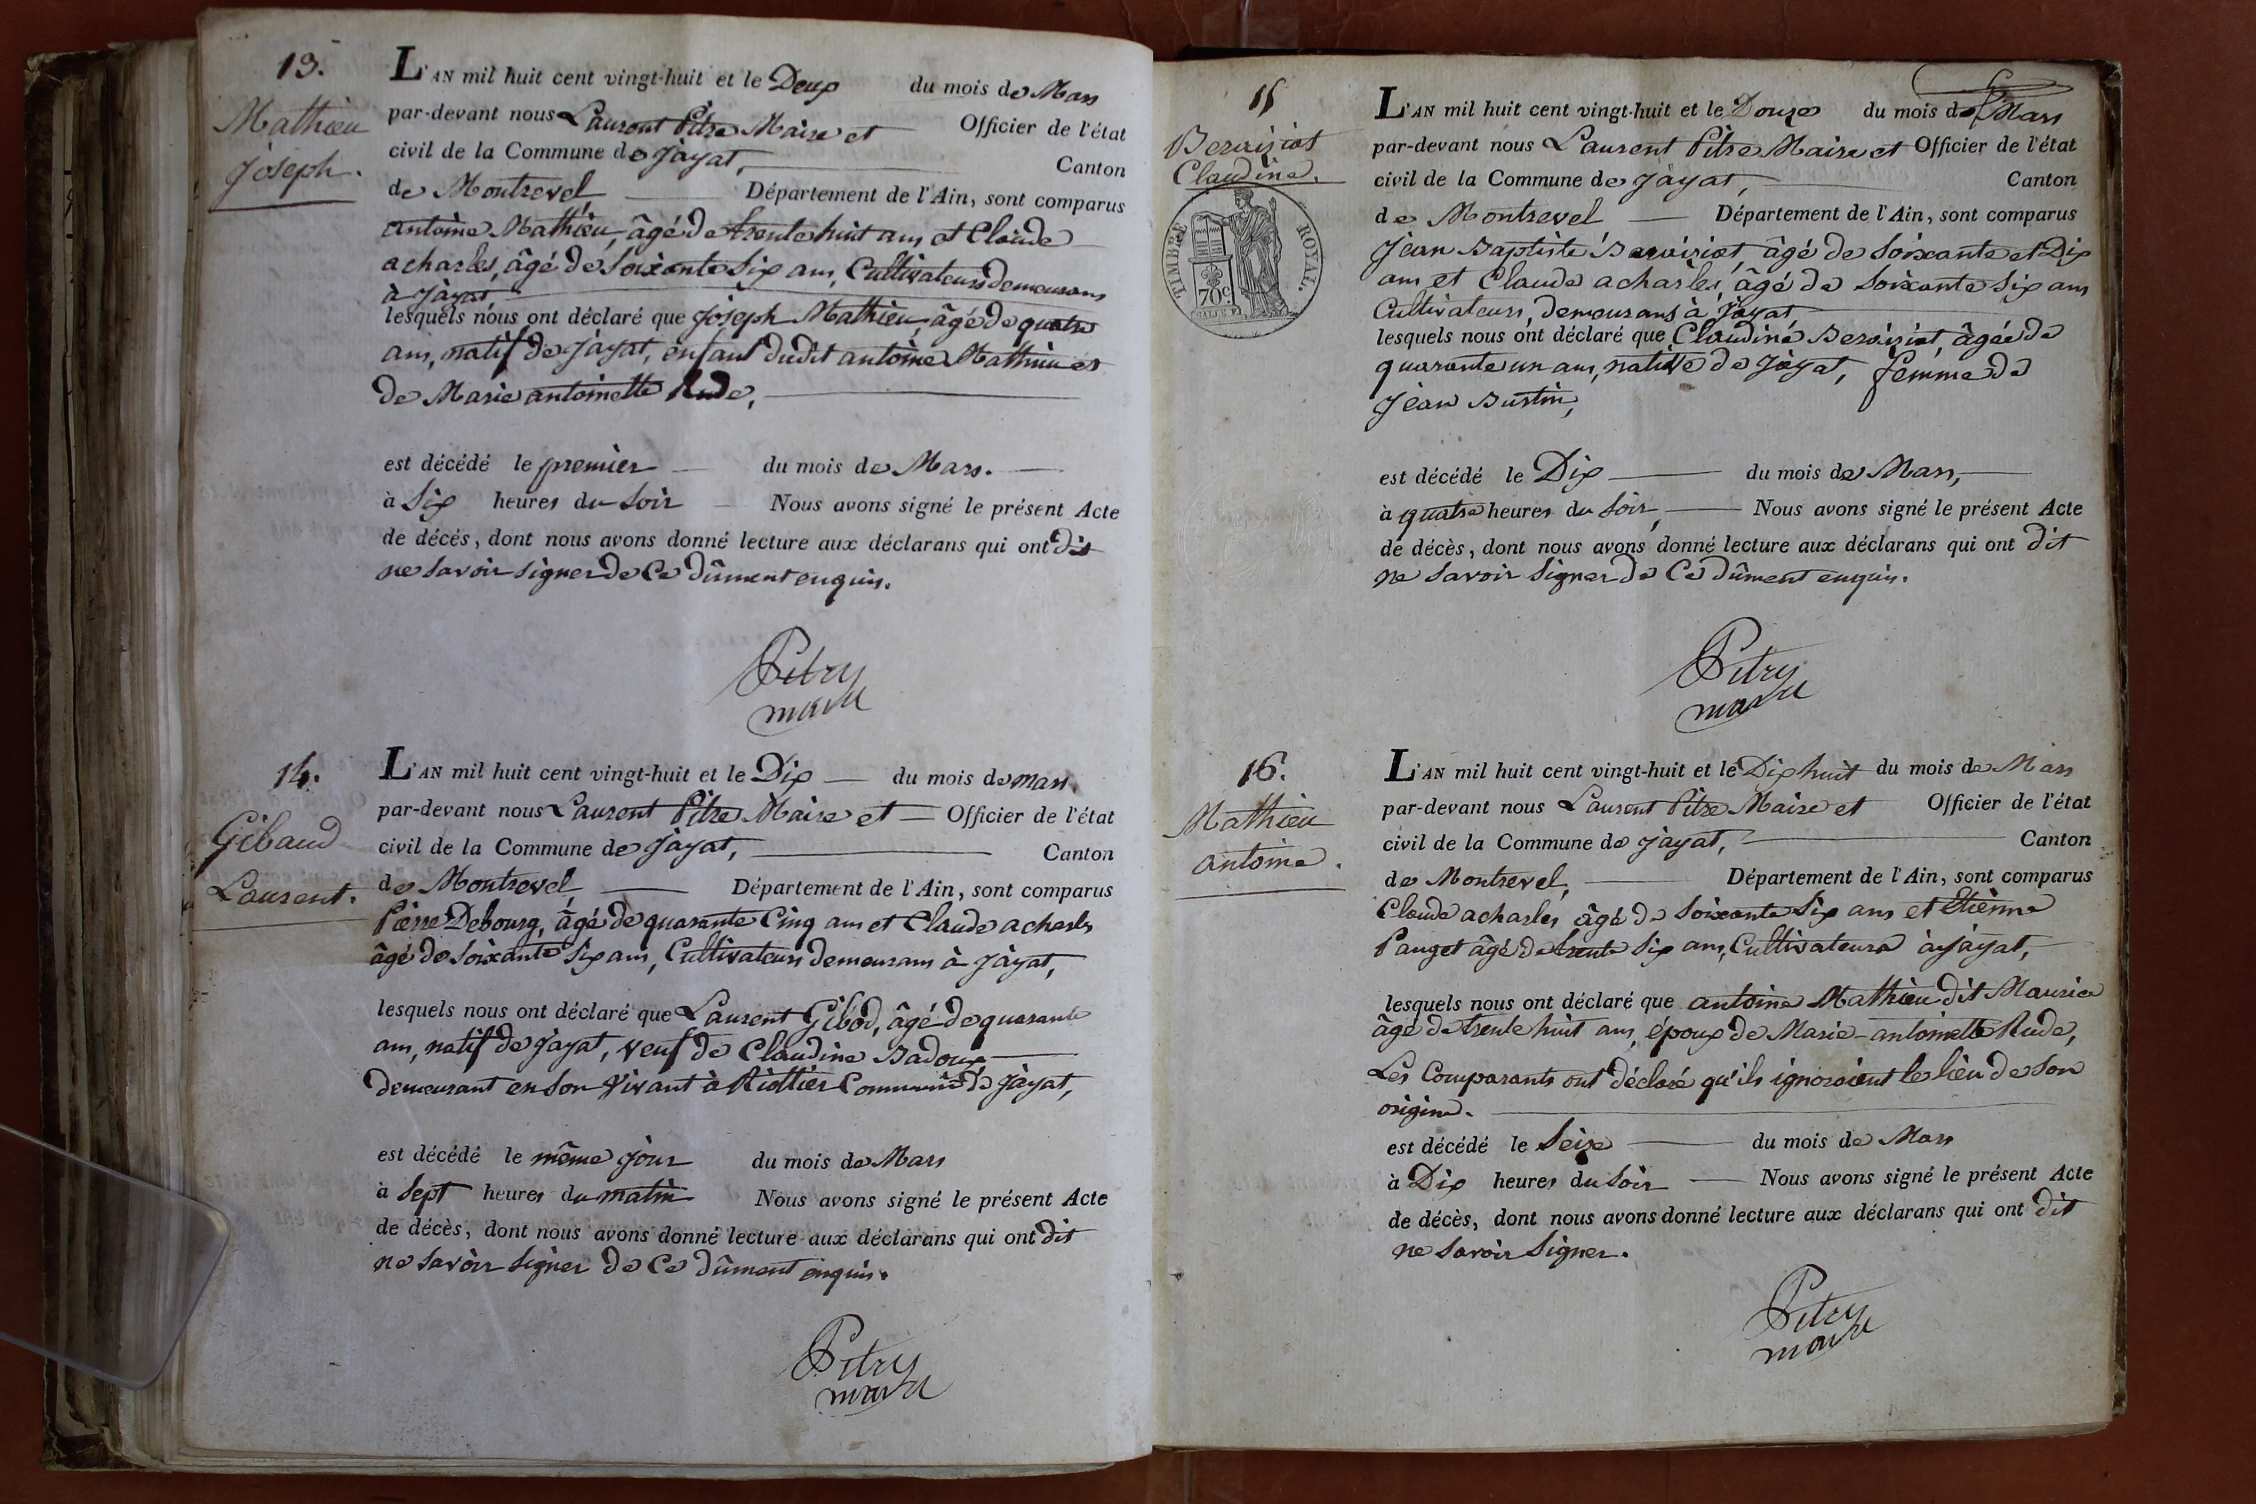 13.
Mathieu
Joseph.
L'AN mil huit cent vingt-huit et le Deux du mois de Mars
par-devant nous Laurent Pitre Maire et Officier de l'état
civil de la Commune de Jayat, Canton
de Montrevel, Département de l'Ain, sont comparus
antoine Mathieu, âgé de trente huit ans et Claude
acharles, âgé de soixante six ans, Cultivateurs demeurans
à Jayat
lesquels nous ont déclaré que Joseph Mathieu, âgé de quatre
ans, natif de Jayat, enfant dudit antoine Mathieu et
de Marie antoinette Rude,
est décédé le premier du mois de Mars.
à Six heures du soir Nous avons signé le présent Acte
de décès, dont nous avons donné lecture aux déclarans qui ont dit
ne savoir signer de ce dûment enquis.
Pitre
maire
14.
Gibaud
Laurent.
L'AN mil huit cent vingt-huit et le Dix du mois de mars,
par-devant nous Laurent Pitre Maire et Officier de l'état
civil de la Commune de Jayat, Canton
de Montrevel, Département de l'Ain, sont comparus
Pierre Debourg, âgé de quarante Cinq ans et Claude acharles
âgé de soixante six ans, Cultivateurs demeurans à Jayat,
lesquels nous ont déclaré que Laurent Gibod, âgé de quarante
ans, natif de Jayat, veuf de Claudine Badoux
demeurant en son vivant à Riottier Commune de Jayat,
est décédé le même jour du mois de Mars
à sept heures du matin Nous avons signé le présent Acte
de décès, dont nous avons donné lecture aux déclarans qui ont dit
ne savoir signer de ce dûment enquis.
Pitre
maire
15
Claudine.
TIMBRE ROYAL.
70c
L'AN mil huit cent vingt-huit et le Douze du mois de Mars
par-devant nous Laurent Pitre Maire et Officier de l'état
civil de la Commune de Jayat, Canton
de Montrevel Département de l'Ain, sont comparus
Jean Baptiste âgé de soixante et Dix
ans et Claude acharles, âgé de soixante six ans
Cultivateurs, demeurans à Jayat
lesquels nous ont déclaré que Claudine âgée de
quarante un ans, native de Jayat, femme de
Jean Bustin,
est décédé le Dix du mois de Mars,
à quatre heures du soir, Nous avons signé le présent Acte
de décès, dont nous avons donné lecture aux déclarans qui ont dit
ne savoir signer de ce dûment enquis.
Pitre
maire
16.
Mathieu
antoine.
L'AN mil huit cent vingt-huit et le Dix huit du mois de Mars
par-devant nous Laurent Pitre Maire et Officier de l'état
civil de la Commune de Jayat, Canton
de Montrevel, Département de l'Ain, sont comparus
Claude acharles âgé de soixante six ans et Etienne
Pauget âgé de trente six ans, Cultivateurs à Jayat,
lesquels nous ont déclaré que antoine Mathieu dit Maurice
âgé de trente huit ans, époux de Marie-antoinette Rude,
Les Comparants ont déclaré qu'ils ignoroient le lieu de son
origine.
est décédé le seize du mois de Mars
à Dix heures du soir Nous avons signé le présent Acte
de décès, dont nous avons donné lecture aux déclarans qui ont dit
ne savoir signer.
Pitre
maire